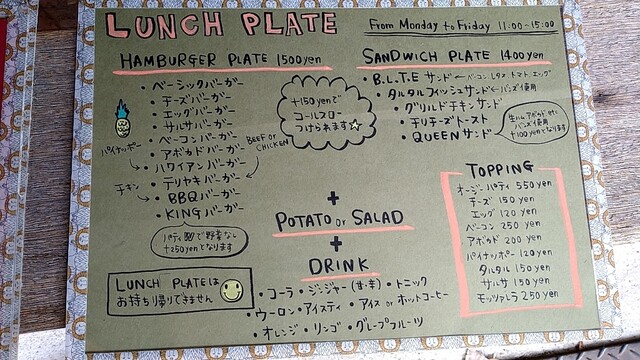 LUNCH PLATE
From Monday to Friday 11:00-15:00
HAMBURGER PLATE 1500yen
・ベーシックバーガー
・チーズバーガー
・エッグバーガー
・サルサバーガー
・ベーコンバーガー
・アボカドバーガー
パイナッポー
・ハワイアンバーガー
・テリヤキバーガー
BEEF OR CHICKEN
チキン
・BBQバーガー
・KINGバーガー
で野菜なし
+250yenとなります
+150yenで
コールスロー
つけられます☆
SANDWICH PLATE 1400yen
・B.L.T.E サンド ←ベーコン.レタス.トマト.エッグ
・タルタルフィッシュサンド←バンズ使用
・グリルドチキンサンド
・チリチーズトースト
・QUEENサンド
バンズ使用
+100yenとなります
+
POTATO or SALAD
+
DRINK
・コーラ ・ジンジャー(甘・辛) ・トニック
・ウーロン ・アイスティ ・アイス or ホットコーヒー
・オレンジ ・リンゴ ・グレープフルーツ
TOPPING
オージーパティ 550yen
チーズ 150yen
エッグ 120yen
ベーコン 250yen
アボカド 200yen
パイナッポー 120yen
タルタル 150yen
サルサ 150yen
モッツァレラ 250yen
LUNCH PLATEは
お持ち帰りできません